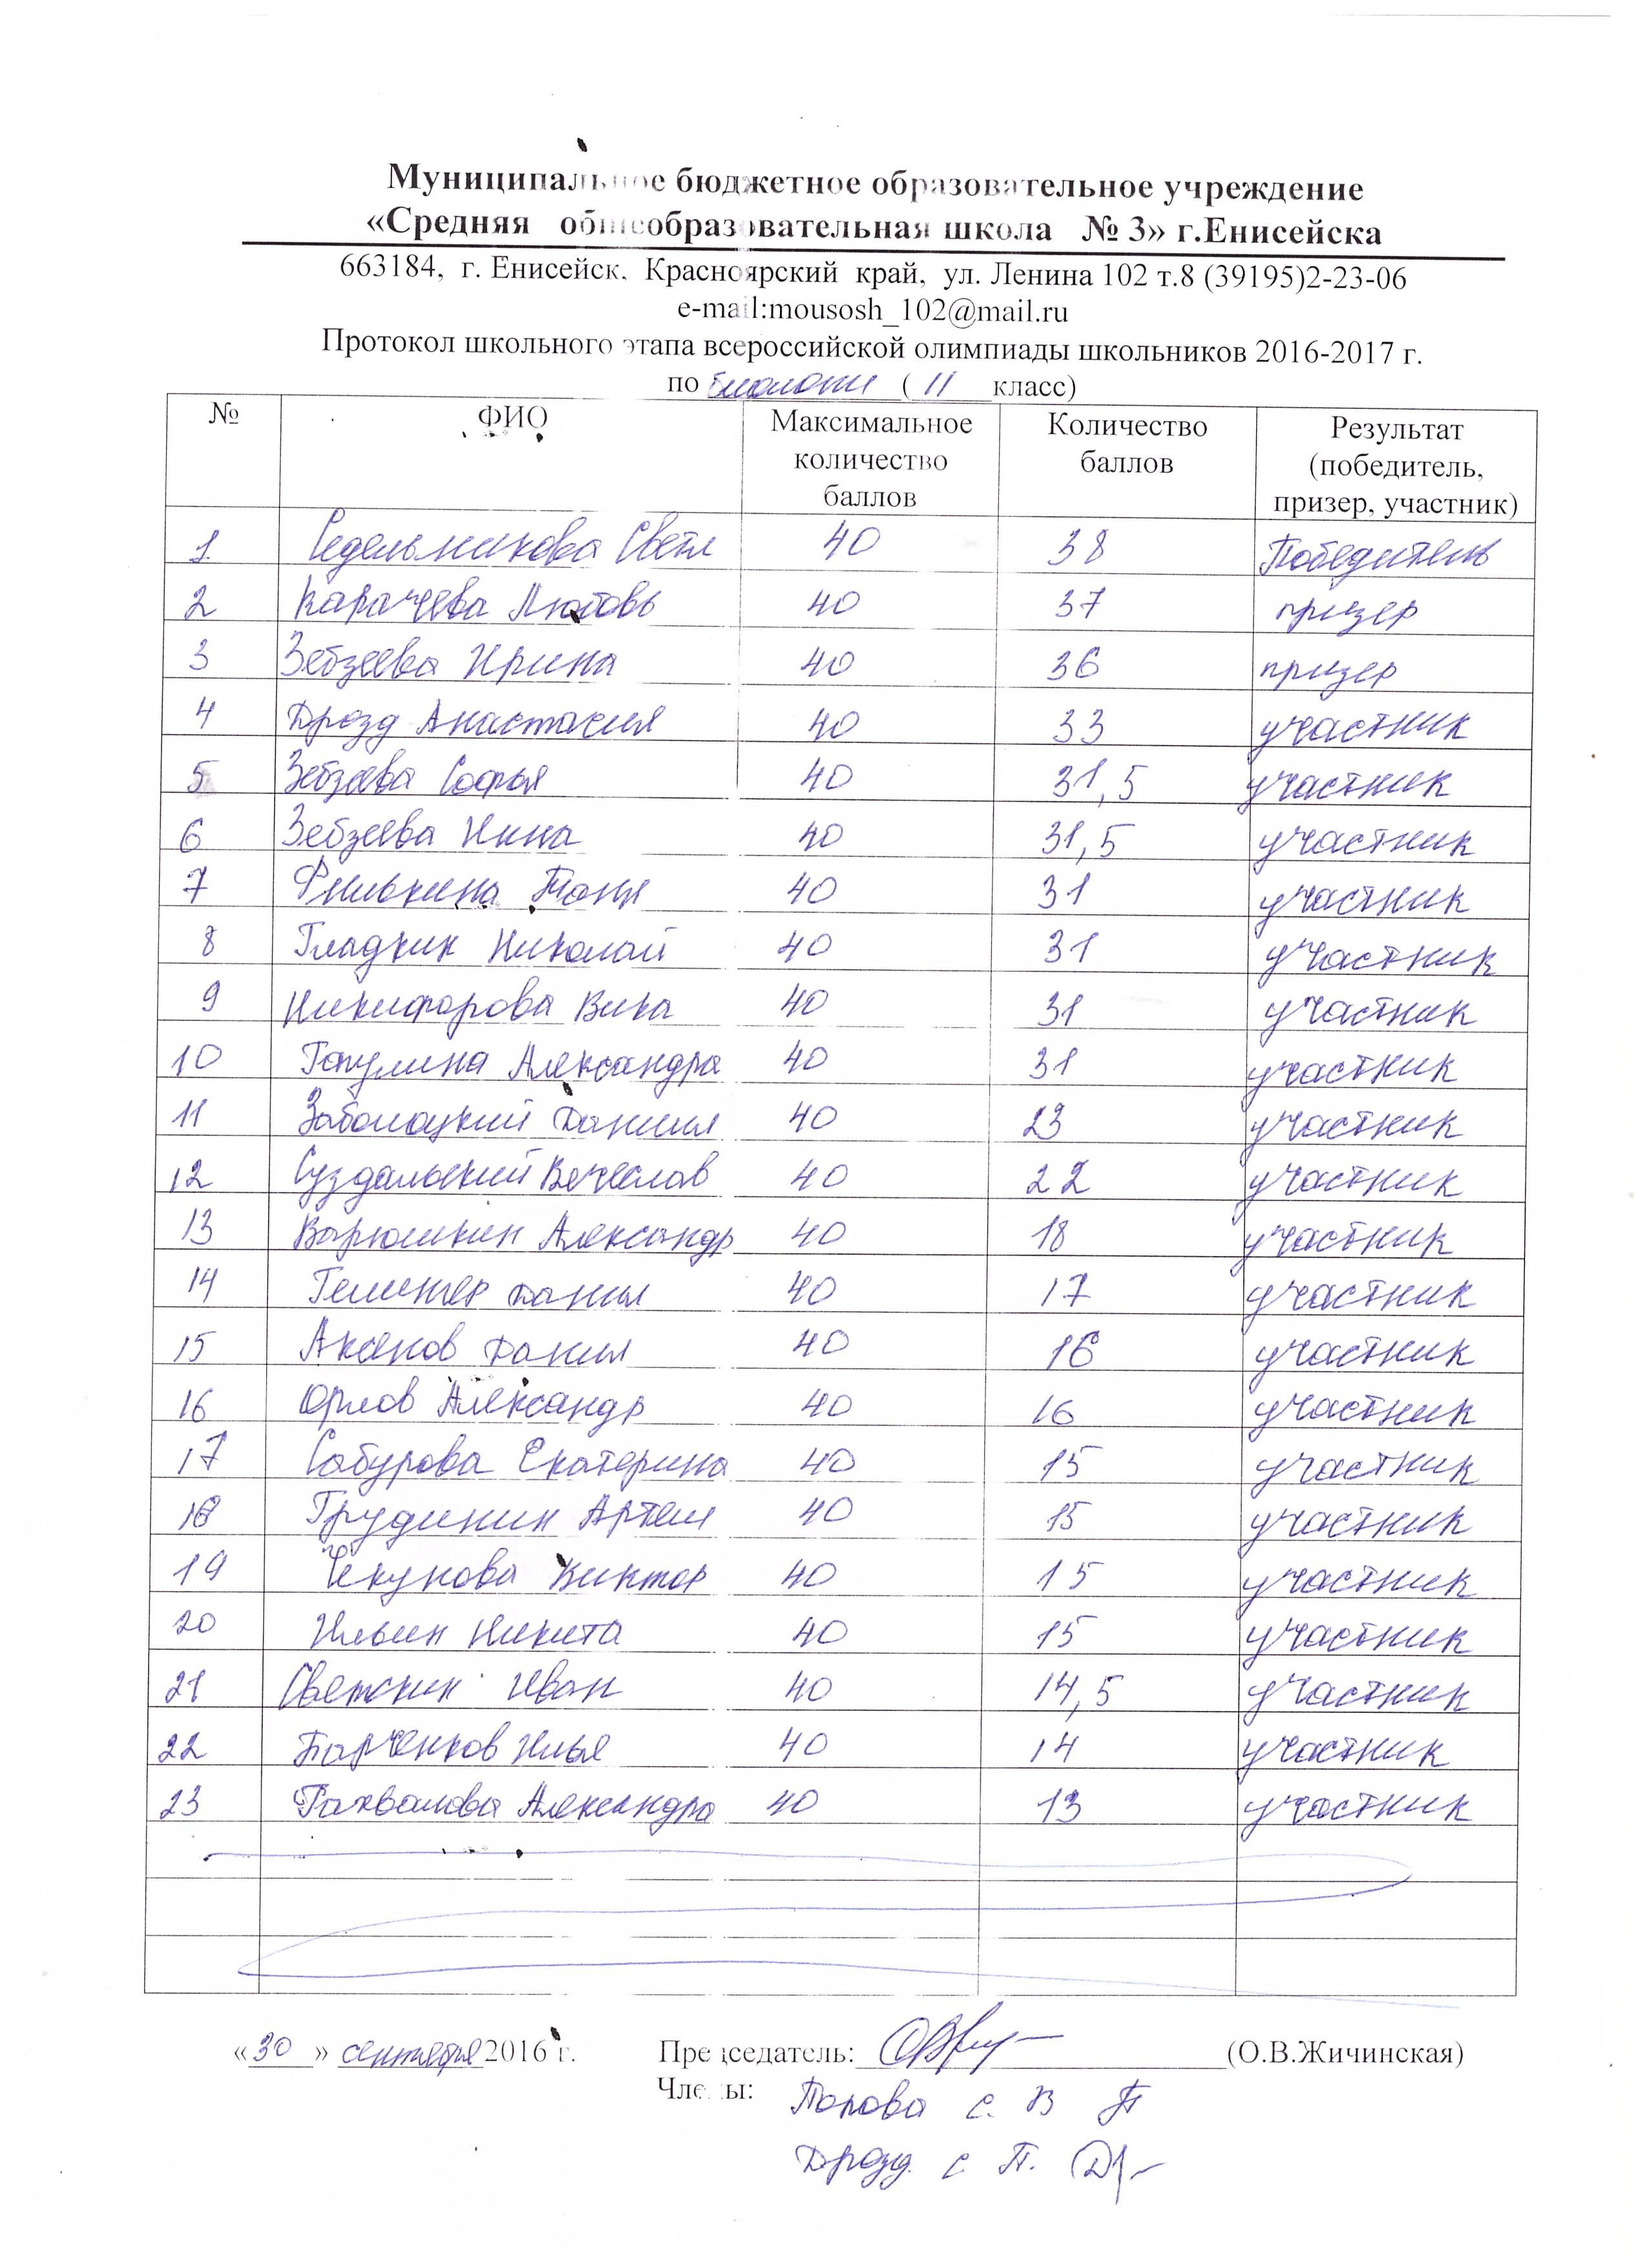 Муниципальное бюджетное образовательное учреждение
«Средняя общеобразовательная школа № 3» г.Енисейска
663184, г. Енисейск, Красноярский край, ул. Ленина 102 т.8 (39195)2-23-06
e-mail:mousosh_102@mail.ru
Протокол школьного этапа всероссийской олимпиады школьников 2016-2017 г.
по биологии ( 11 класс)
№ ФИО Максимальное количество баллов Количество баллов Результат (победитель, призер, участник)
1 Седельникова Светл 40 38 Победитель
2 Карачева Любовь 40 37 призер
3 Зебзеева Ирина 40 36 призер
4 Дрозд Анастасия 40 33 участник
5 Зебзеева Софья 40 31,5 участник
6 Зебзеева Инна 40 31,5 участник
7 Филькина Таня 40 31 участник
8 Гладкин Николай 40 31 участник
9 Никифорова Вика 40 31 участник
10 Александра 40 31 участник
11 Заболоцкий Даниил 40 23 участник
12 Суздальский Вечеслав 40 22 участник
13 Варюшкин Александр 40 18 участник
14 Данил 40 17 участник
15 Аксенов Данил 40 16 участник
16 Орлов Александр 40 16 участник
17 Сабурова Екатерина 40 15 участник
18 Грудинин Артем 40 15 участник
19 Чекунова Виктор 40 15 участник
20 Ильин Никита 40 15 участник
21 Иван 40 14,5 участник
22 Парченков Илья 40 14 участник
23 Александра 40 13 участник
«30» сентября 2016 г. Председатель: (О.В.Жичинская)
Члены: Попова С. В
Дрозд С П.